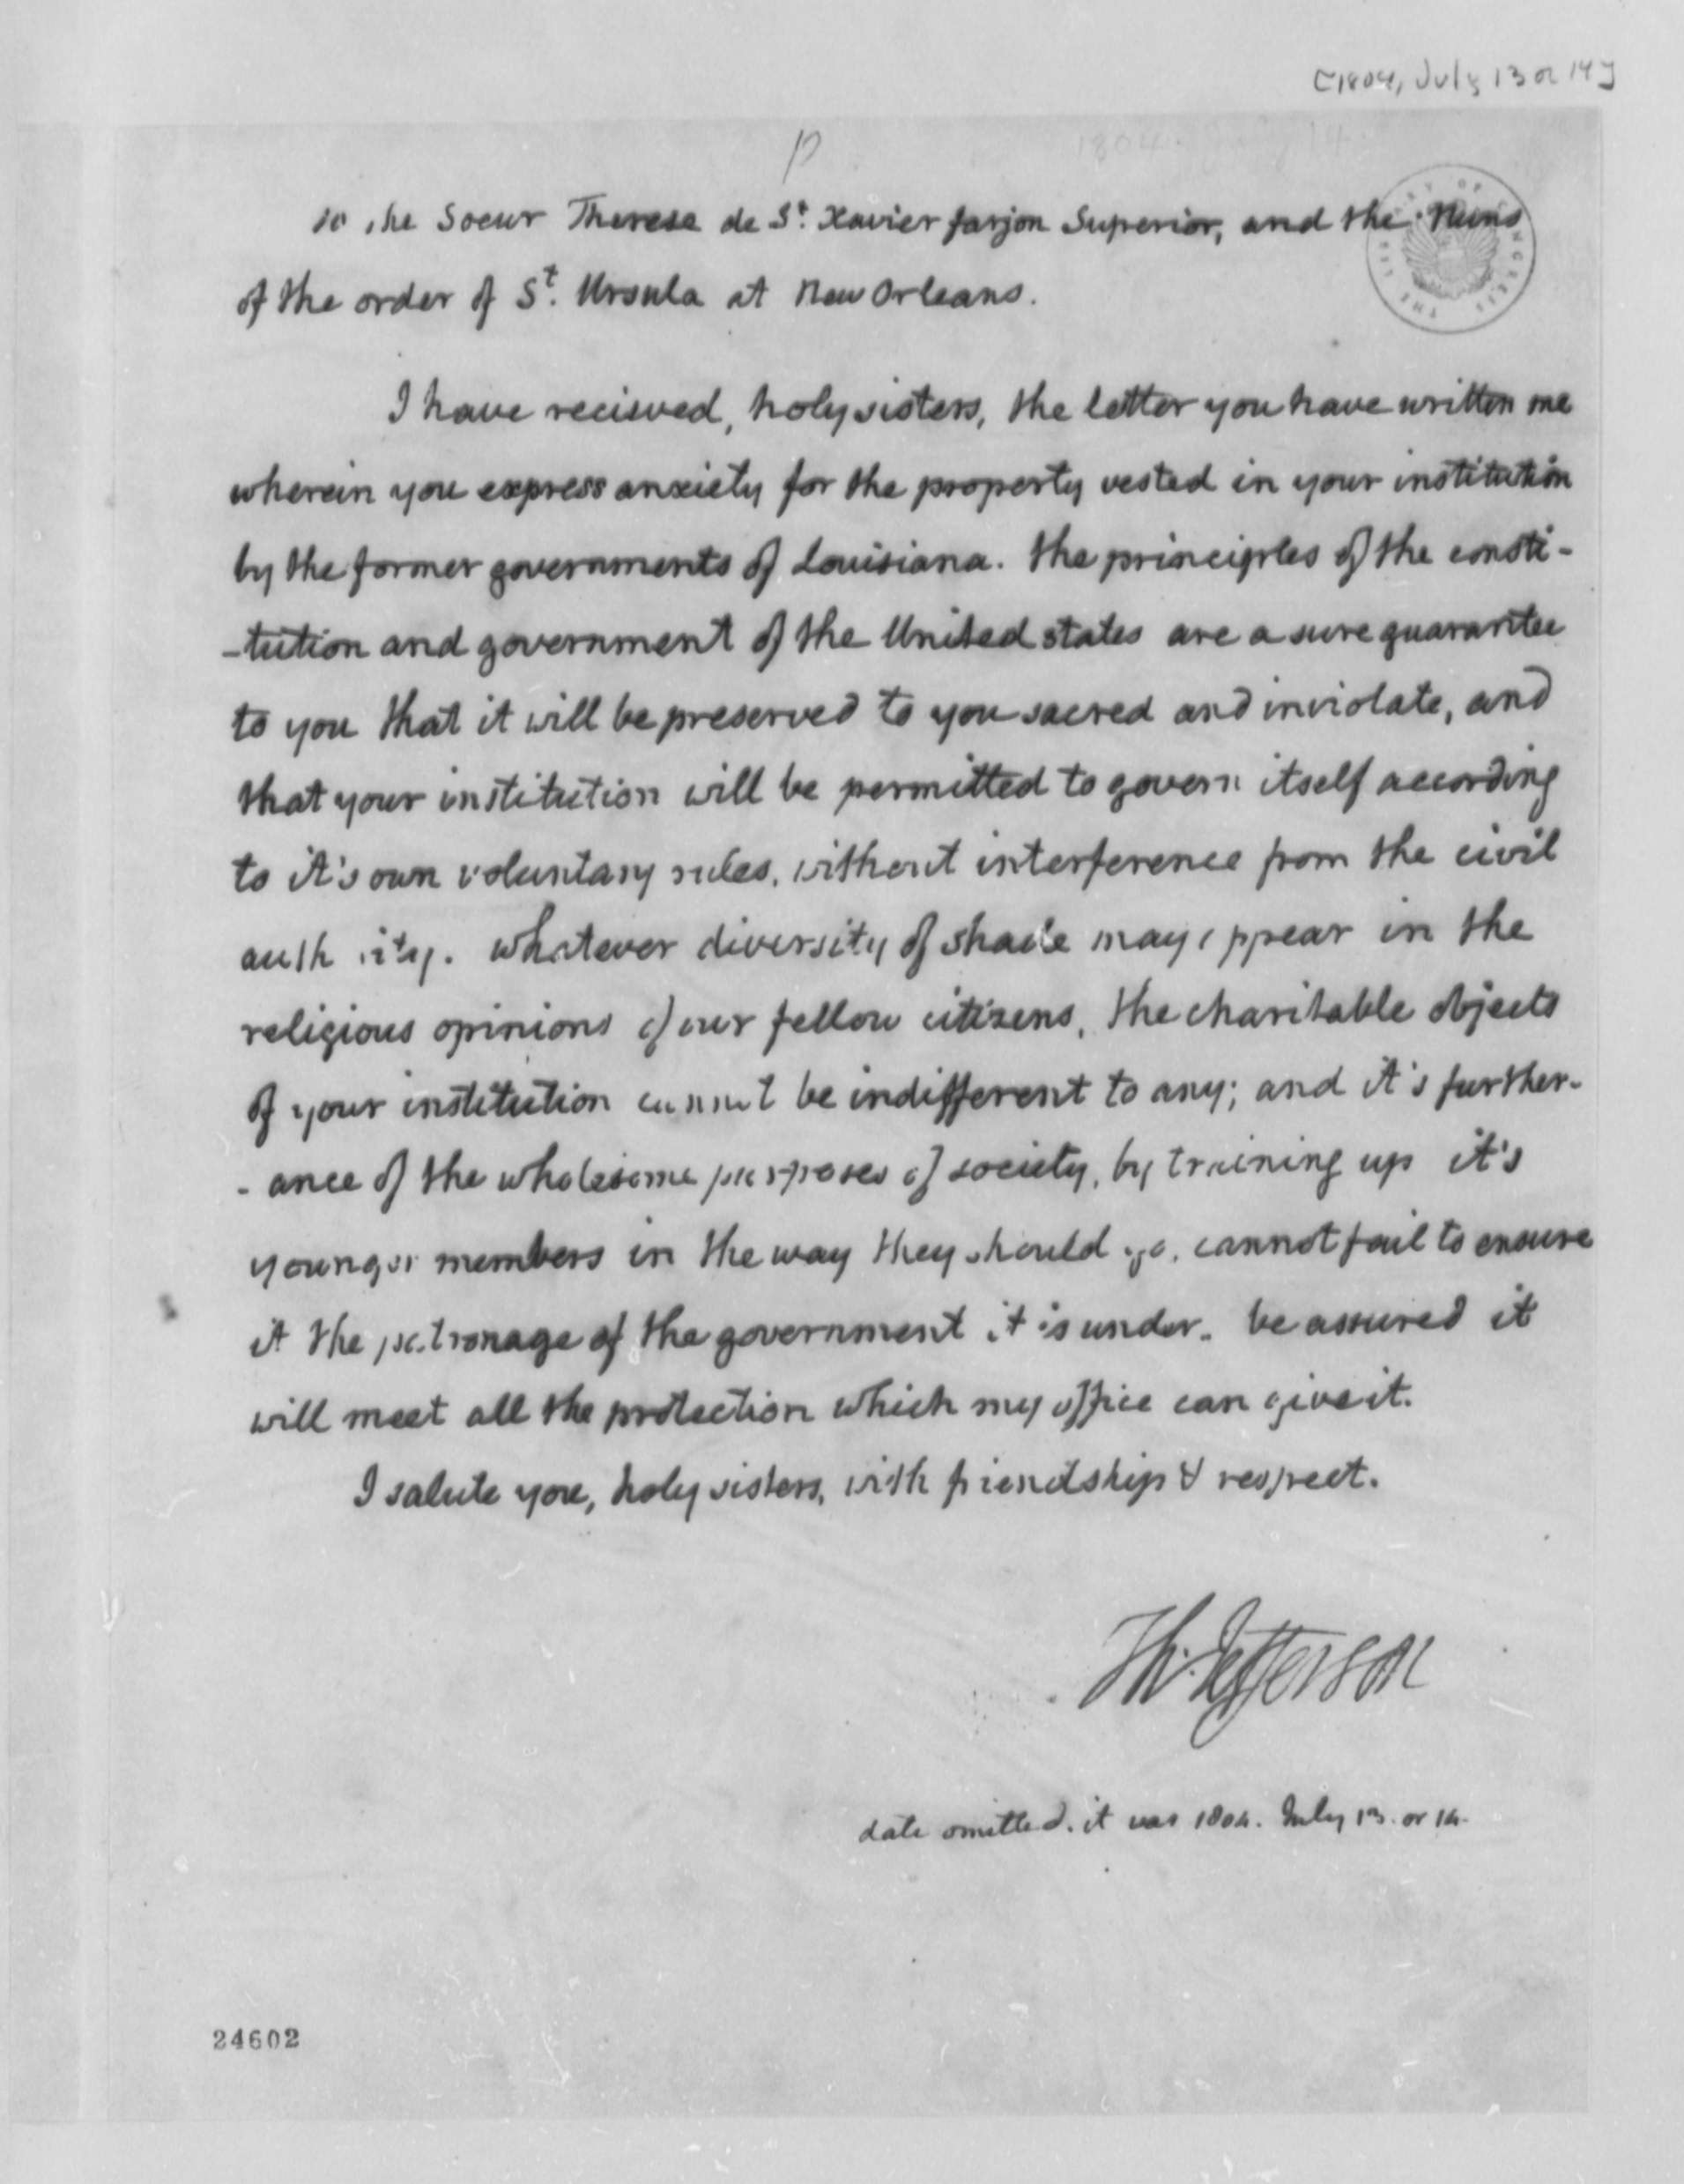 [1804, July 13 or 14]
To the Soeur Therese de St. Xavier farjon Superior, and the Nuns
of the order of St. Ursula at New Orleans.
I have recieved, holy sisters, the letter you have written me
wherein you express anxiety for the property vested in your institution
by the former governments of Louisiana. the principles of the consti-
-tution and government of the United states are a sure guarantee
to you that it will be preserved to you sacred and inviolate, and
that your institution will be permitted to govern itself according
to it's own voluntary rules, without interference from the civil
authority. whatever diversity of shade may appear in the
religious opinions of our fellow citizens, the charitable objects
of your institution cannot be indifferent to any; and it's further-
-ance of the wholesome purposes of society, by training up it's
younger members in the way they should go, cannot fail to ensure
it the patronage of the government it is under. be assured it
will meet all the protection which my office can give it.
I salute you, holy sisters, with friendship & respect.
Th: Jefferson
date omitted. it was 1804. July 13. or 14.
24602